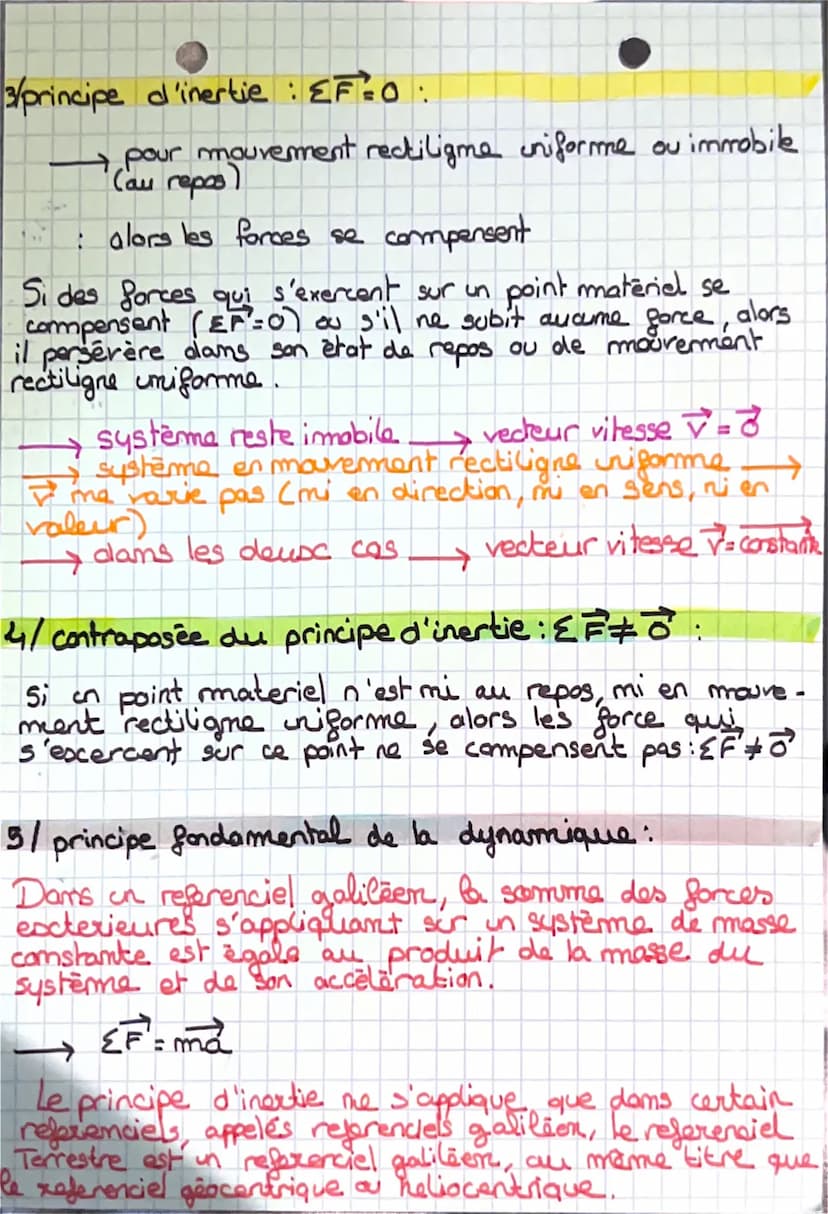 3/principe d'inertie : ΣF⃗=0 :
→ pour mouvement rectiligne uniforme ou immobile
(au repos)
: alors les forces se compensent
Si des forces qui s'exercent sur un point matériel se
compensent (ΣF⃗=0) ou s'il ne subit aucune force, alors
il persévère dans son état de repos ou de mouvement
rectiligne uniforme.
→ système reste immobile → vecteur vitesse v⃗ = 0⃗
→ système en mouvement rectiligne uniforme →
v⃗ ne varie pas (ni en direction, ni en sens, ni en
valeur)
→ dans les deux cas → vecteur vitesse v⃗= constante
4/ contraposée du principe d'inertie : ΣF⃗ ≠ 0⃗ :
Si un point materiel n'est ni au repos, ni en mouve-
ment rectiligne uniforme, alors les force qui
s'excercent sur ce point ne se compensent pas : ΣF⃗ ≠ 0⃗
5/ principe fondamental de la dynamique :
Dans un referenciel galiléen, la somme des forces
exterieures s'appliquant sur un système de masse
constante est égale au produit de la masse du
système et de son accélération.
→ ΣF⃗ = ma⃗
Le principe d'inertie ne s'applique que dans certain
referenciels, appelés referenciels galiléen, le referenciel
Terrestre est un referenciel galiléen, au même titre que
le referenciel géocentrique ou heliocentrique.